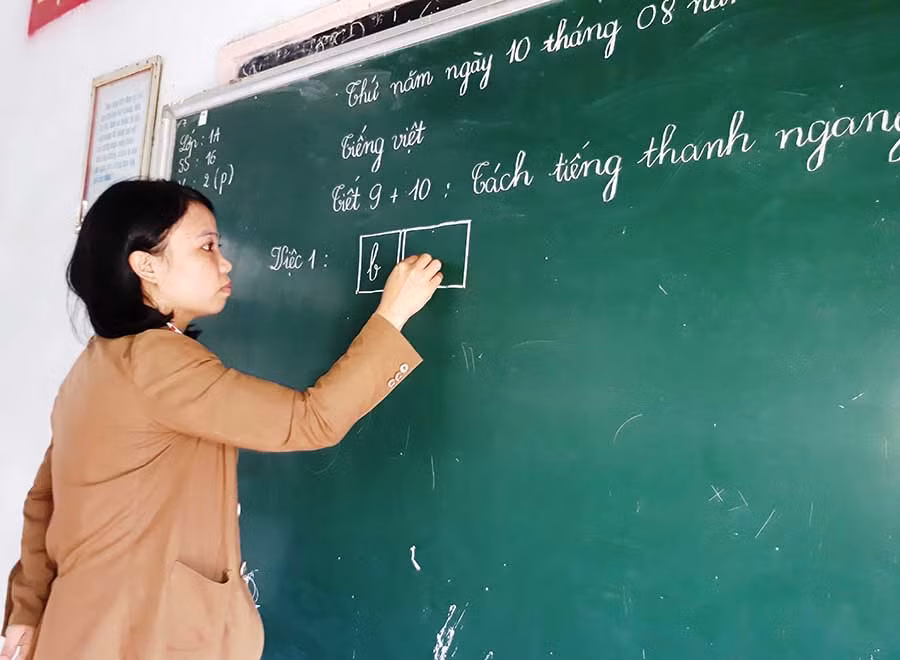 Thứ năm ngày 10 tháng 08
Lớp: 1A
SS: 16
2 (p)
Tiếng việt
Tiết 9 + 10 : Tách tiếng thanh ngang
Việc 1 :
b